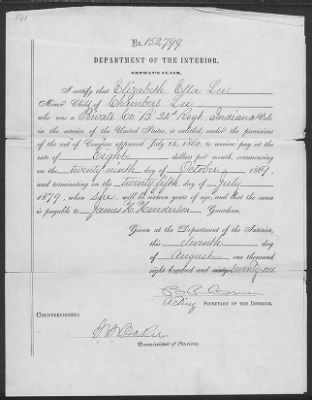 No. 152,799
DEPARTMENT OF THE INTERIOR.
ORPHAN'S CLAIM.
I certify that Elizabeth Etta Lee
Minor Child of Chambers Lee
who was a Private Co B 24" Regt Indiana Vols.
in the service of the United States, is entitled under the provisions
of the act of Congress approved July 14, 1862, to receive pay at the
rate of Eight dollars per month, commencing
on the twenty ninth day of October, 1867,
and terminating on the twenty fifth day of July
1879, when she will be sixteen years of age, and that the same
is payable to James H. Henderson Guardian.
Given at the Department of the Interior,
this Seventh day
of August one thousand
eight hundred and sixty seventy one
Acting SECRETARY OF THE INTERIOR.
COUNTERSIGNED:
Commissioner of Pensions.